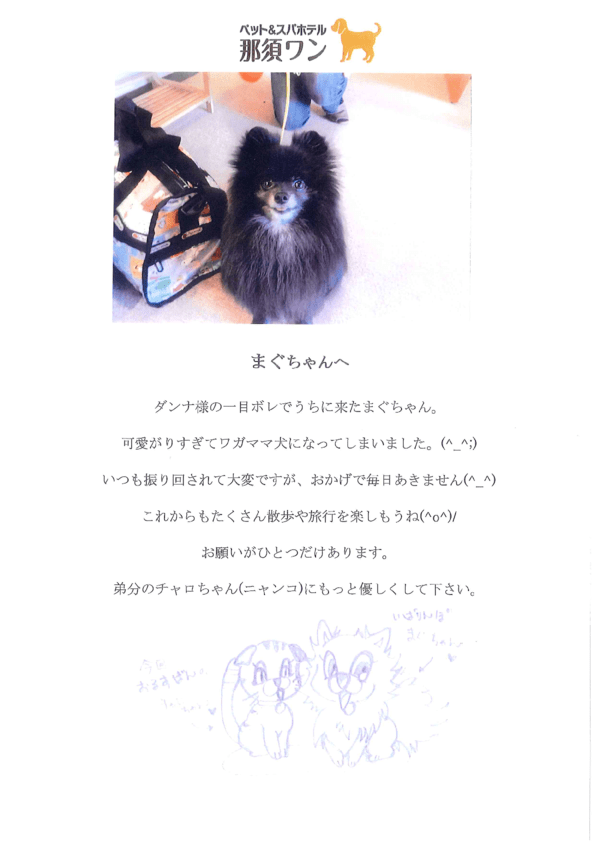 ペット&スパホテル
那須ワン
まぐちゃんへ
ダンナ様の一目ボレでうちに来たまぐちゃん。
可愛がりすぎてワガママ犬になってしまいました。(^_^;)
いつも振り回されて大変ですが、おかげで毎日あきません(^_^)
これからもたくさん散歩や旅行を楽しもうね(^o^)/
お願いがひとつだけあります。
弟分のチャロちゃん(ニャンコ)にもっと優しくして下さい。
いばりんぼ